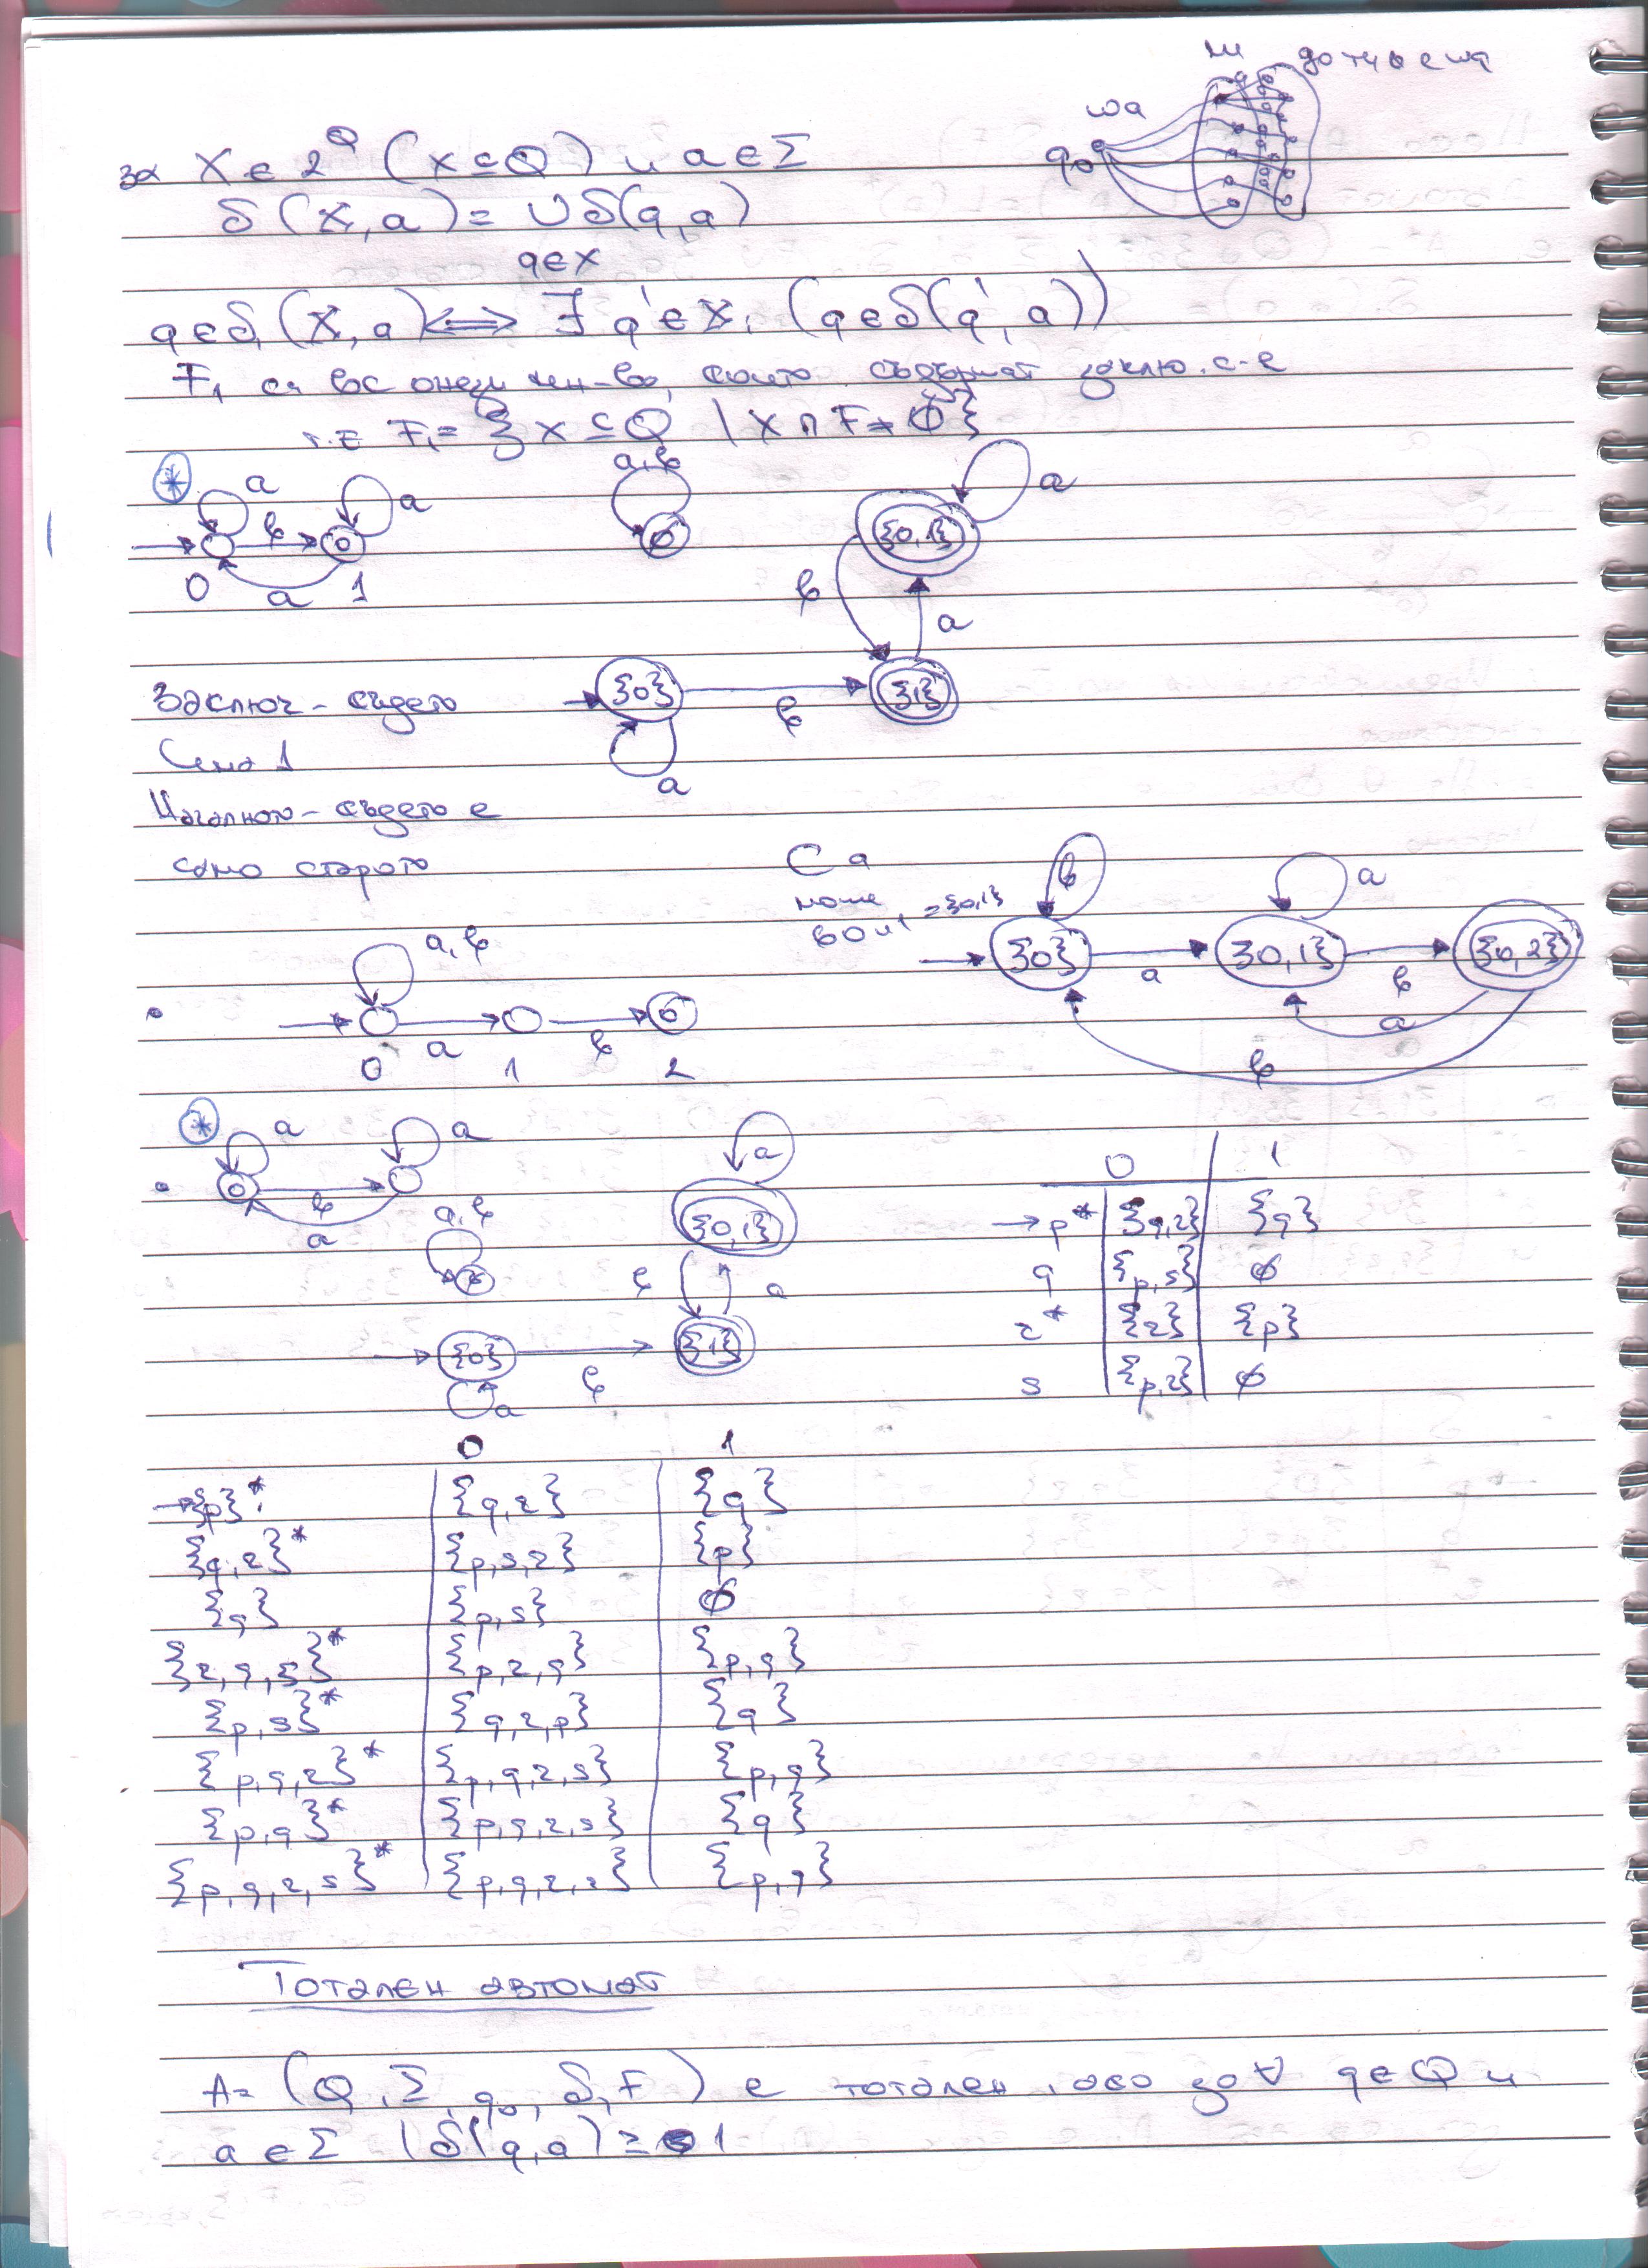 wa
q₀
за X ∈ 2^Q (x ⊆ Q) и a ∈ Σ
δ(X, a) = ∪ δ(q, a)
q ∈ x
q ∈ δ₁(X, a) ⟺ ∃ q' ∈ X, (q ∈ δ(q', a))
F₁ са вс онези мн-ва, които съдържат заключ. с-е
т.е F₁ = {x ⊆ Q | x ∩ F ≠ ∅}
* a a a,b a
b {0,1}
0 a 1 ∅ b a
Заключ - същето {0} b {1}
Само 1 a
Началното - същето е
само старото
С a
може
в 0 и 1 = {0,1}
b a
{0} a {0,1} b {0,2}
a
b
a,b
0 a 1 b 2
* a a a
b {0,1}
a a,b
∅ b a
{0} b {1}
a
0 1
→ p* {q,r} {q}
q {p,s} ∅
r* {r} {p}
s {p,r} ∅
0 1
→{p}* {q,r} {q}
{q,r}* {p,s,r} {p}
{q} {p,s} ∅
{r,q,s}* {p,r,q} {p,q}
{p,s}* {q,r,p} {q}
{p,q,r}* {p,q,r,s} {p,q}
{p,q}* {p,q,r,s} {q}
{p,q,r,s}* {p,q,r,s} {p,q}
Тотален автомат
A = (Q, Σ, q₀, δ, F) е тотален, ако за ∀ q ∈ Q и
a ∈ Σ |δ(q,a) ≥ 1